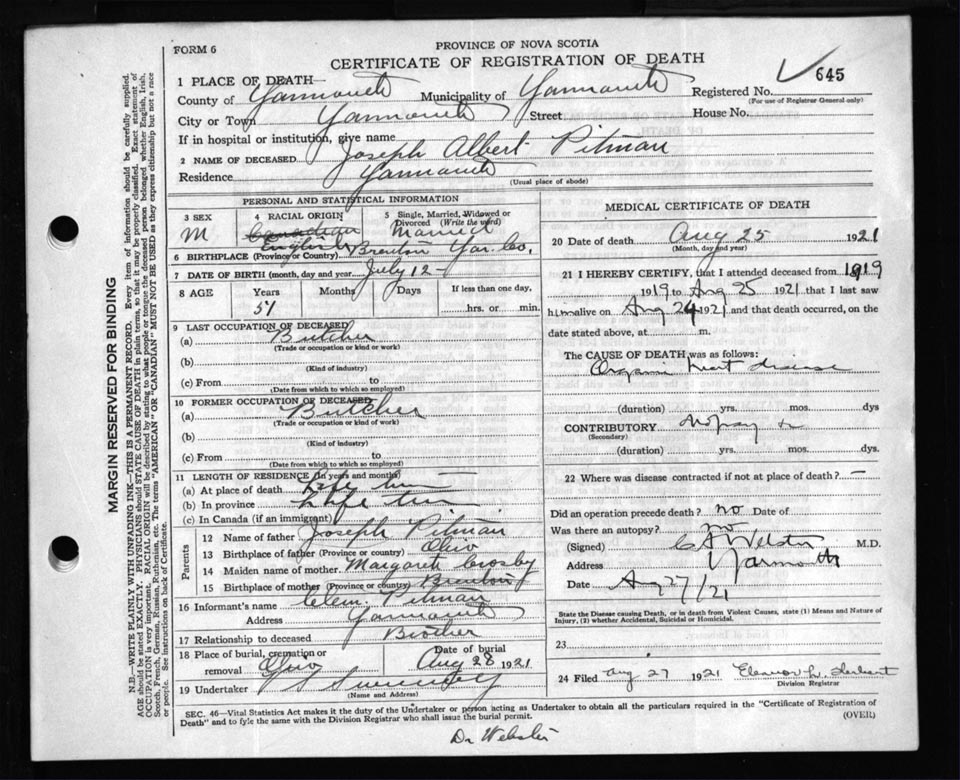 FORM 6
PROVINCE OF NOVA SCOTIA
CERTIFICATE OF REGISTRATION OF DEATH
645
1 PLACE OF DEATH—
County of Yarmouth Municipality of Yarmouth Registered No.
(For use of Registrar General only)
City or Town Yarmouth Street House No.
If in hospital or institution, give name
2 NAME OF DECEASED Joseph Albert Pitman
Residence Yarmouth
(Usual place of abode)
PERSONAL AND STATISTICAL INFORMATION
3 SEX 4 RACIAL ORIGIN 5 Single, Married, Widowed or Divorced (Write the word)
M Canadian Married
English
6 BIRTHPLACE (Province or Country) Brenton Yar. Co.
7 DATE OF BIRTH (month, day and year) July 12 -
8 AGE Years Months Days If less than one day,
51 hrs. or min.
9 LAST OCCUPATION OF DECEASED
(a) Butcher
(Trade or occupation or kind or work)
(b)
(Kind of industry)
(c) From to
(Date from which to which so employed)
10 FORMER OCCUPATION OF DECEASED
(a) Butcher
(Trade or occupation or kind of work)
(b)
(Kind of industry)
(c) From to
(Date from which to which so employed)
11 LENGTH OF RESIDENCE (in years and months)
(a) At place of death Life time
(b) In province Life time
(c) In Canada (if an immigrant)
Parents
12 Name of father Joseph Pitman
13 Birthplace of father (Province or country) Ohio
14 Maiden name of mother Margaret Crosby
15 Birthplace of mother (Province or country) Brenton
16 Informant's name Clem. Pitman
Address Yarmouth
17 Relationship to deceased Brother
18 Place of burial, cremation or removal Ohio Date of burial Aug 28 1921
19 Undertaker Sweeney
(Name and Address)
MEDICAL CERTIFICATE OF DEATH
20 Date of death Aug 25 1921
(Month, day and year)
21 I HEREBY CERTIFY, that I attended deceased from 1919
1919 to Aug 25 1921 that I last saw
him alive on Aug 24 1921 and that death occurred, on the
date stated above, at m.
The CAUSE OF DEATH was as follows:
Organic heart disease
(duration) yrs. mos. dys
CONTRIBUTORY
(Secondary)
(duration) yrs. mos. dys.
22 Where was disease contracted if not at place of death? —
Did an operation precede death? no Date of
Was there an autopsy? no
(Signed) Webster M.D.
Address Yarmouth
Date Aug 27/21
State the Disease causing Death, or in death from Violent Causes, state (1) Means and Nature of
Injury, (2) whether Accidental, Suicidal or Homicidal.
23
24 Filed aug 27 1921
Division Registrar
SEC. 46—Vital Statistics Act makes it the duty of the Undertaker or person acting as Undertaker to obtain all the particulars required in the "Certificate of Registration of
Death" and to fyle the same with the Division Registrar who shall issue the burial permit. (OVER)
Dr Webster
MARGIN RESERVED FOR BINDING
N.B.—WRITE PLAINLY WITH UNFADING INK—THIS IS A PERMANENT RECORD. Every item of information should be carefully supplied.
AGE should be stated EXACTLY. PHYSICIANS should STATE CAUSE OF DEATH in plain terms, so that it may be properly classified. Exact statement of
OCCUPATION is very important. RACIAL ORIGIN will be described by stating to what people or tongue the deceased person belonged whether English, Irish,
Scotch, French, German, Russian, Ruthenian, etc. The terms "AMERICAN" OR "CANADIAN" MUST NOT BE USED as they express citizenship but not a race
or people. See instructions on back of Certificate.